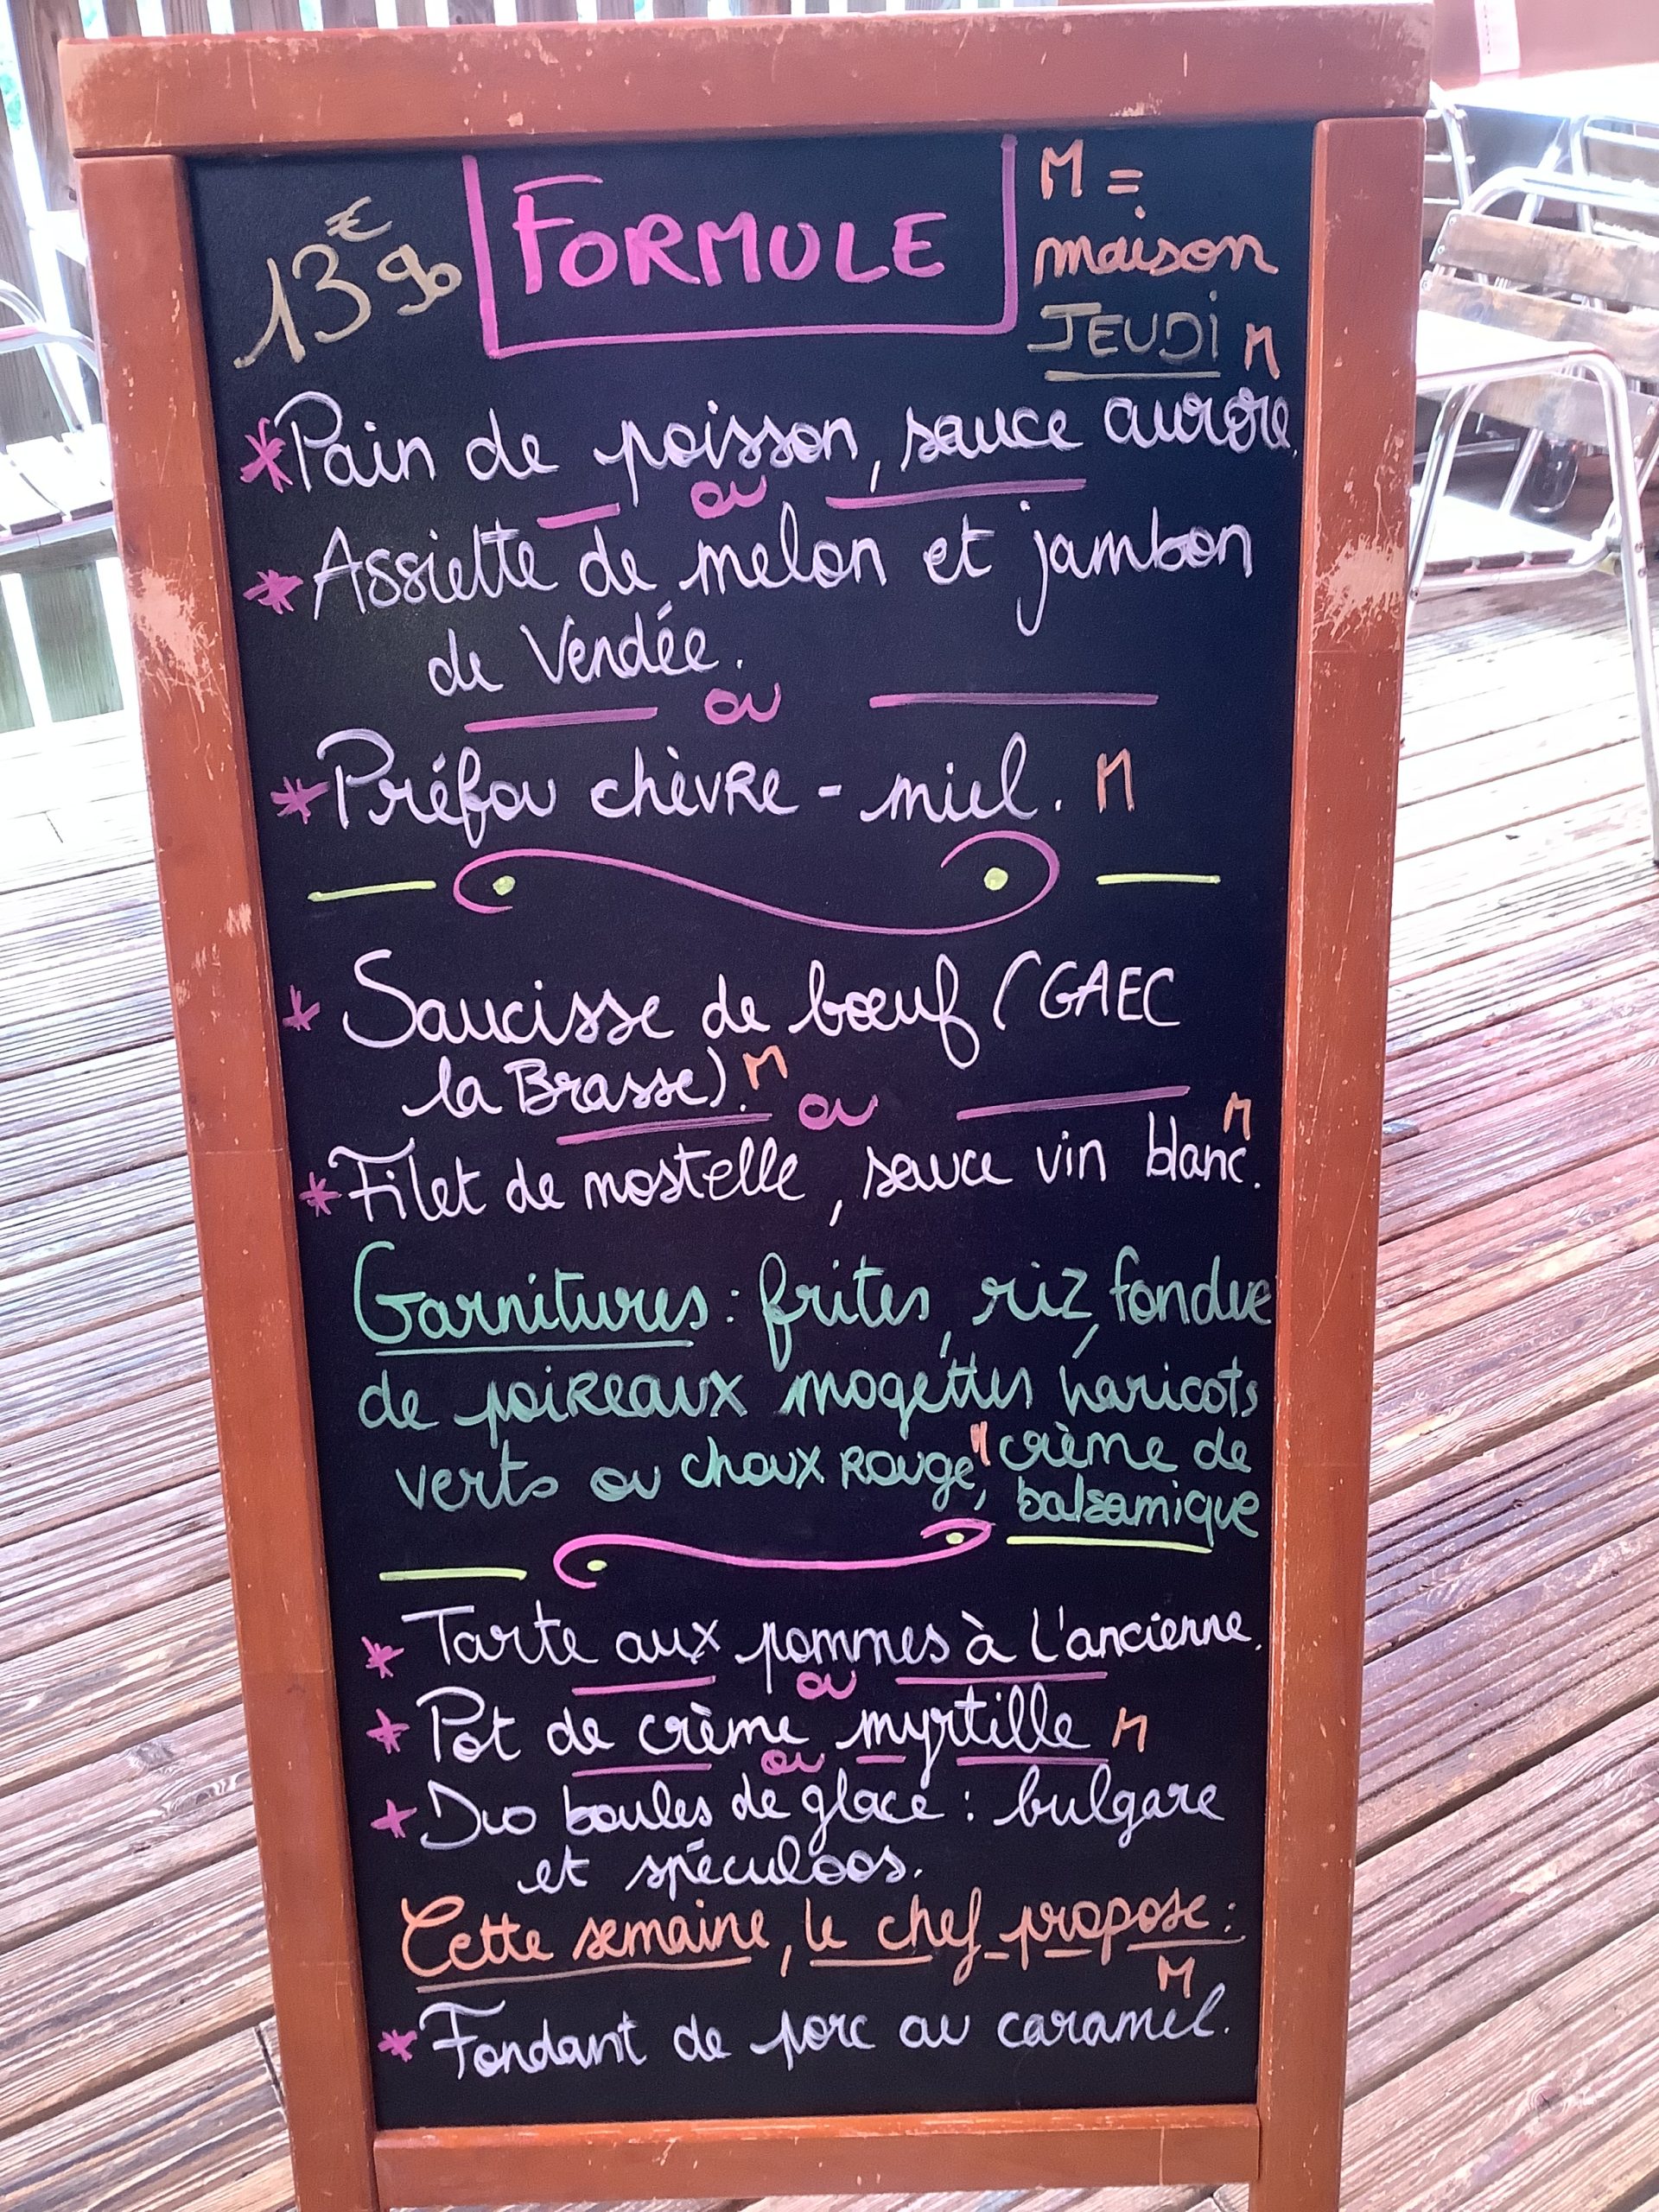 13€90 FORMULE M =
maison
JEUDI M
*Pain de poisson, sauce aurore.
ou
*Assiette de melon et jambon
de Vendée.
ou
*Préfou chèvre - miel. M
* Saucisse de bœuf (GAEC
la Brasse). M
ou
*Filet de mostelle, sauce vin blanc. M
Garnitures : frites, riz, fondue
de poireaux mogettes haricots
verts ou choux rouge, M crème de
balsamique
* Tarte aux pommes à l'ancienne.
ou
* Pot de crème myrtille M
ou
* Duo boules de glace : bulgare
et spéculoos.
Cette semaine, le chef propose :
* Fondant de porc au caramel. M